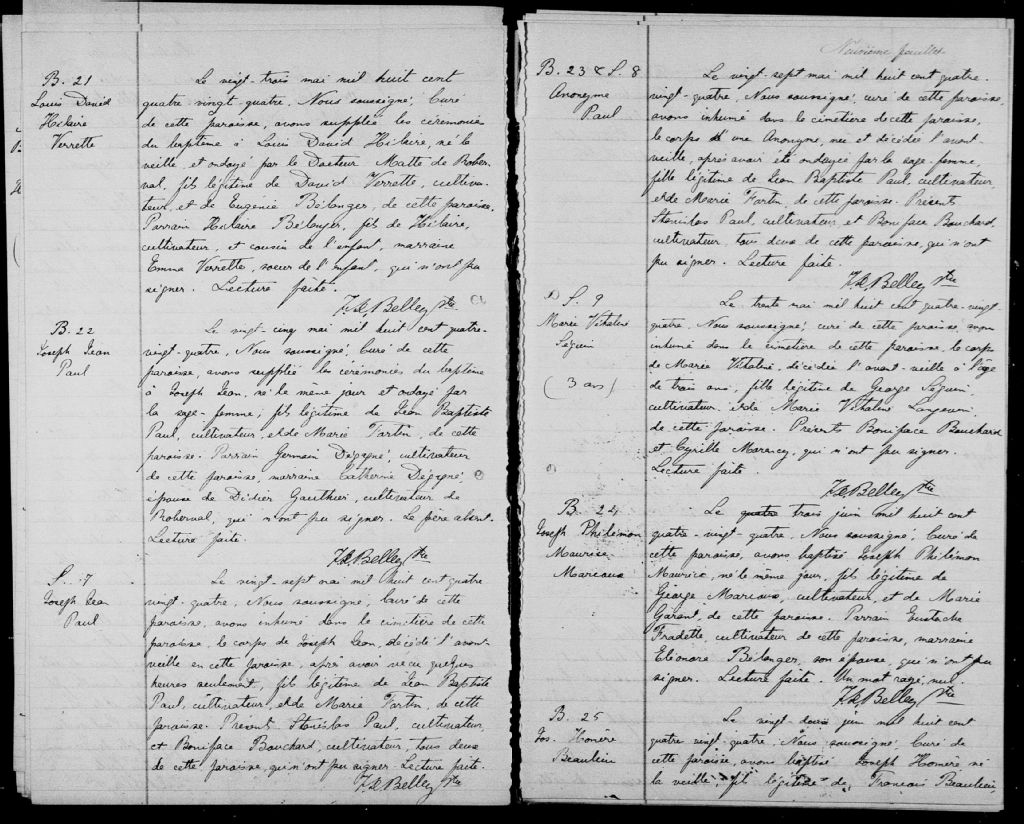 B. 21
Louis David
Hilaire
Verrette
Le vingt-trois mai mil huit cent
quatre-vingt-quatre, Nous soussigné, Curé
de cette paroisse, avons suppléé les cérémonies
du baptême à Louis David Hilaire, né la
veille, et ondoyé par le Docteur Matte de Rober-
val, fils légitime de David Verrette, cultiva-
teur, et de Eugenie Bélanger, de cette paroisse.
Parrain Hilaire Bélanger, fils de Hilaire,
cultivateur, et cousin de l'enfant, marraine
Emma Verrette, soeur de l'enfant, qui n'ont pu
signer. Lecture faite.
Belley Ptre
B. 22
Joseph Jean
Paul
Le vingt-cinq mai mil huit cent quatre-
vingt-quatre, Nous soussigné, Curé de cette
paroisse, avons suppléé les cérémonies du baptême
à Joseph Jean, né le même jour et ondoyé par
la sage-femme, fils légitime de Jean Baptiste
Paul, cultivateur, et de Marie Fortin, de cette
paroisse. Parrain Germain Dégagné, cultivateur
de cette paroisse, marraine Catherine Dégagné,
épouse de Didier Gauthier, cultivateur de
Roberval, qui n'ont pu signer. Le père absent.
Lecture faite.
Belley Ptre
S. 7
Joseph Jean
Paul
Le vingt-sept mai mil huit cent quatre
vingt-quatre, Nous soussigné, Curé de cette
paroisse, avons inhumé dans le cimetière de cette
paroisse, le corps de Joseph Jean, décédé l'avant
veille en cette paroisse, après avoir vécu quelques
heures seulement, fils légitime de Jean Baptiste
Paul, cultivateur, et de Marie Fortin, de cette
paroisse. Présent Stanislas Paul, cultivateur,
et Boniface Bouchard, cultivateur, tous deux
de cette paroisse, qui n'ont pu signer. Lecture faite.
Belley Ptre
Neuvième feuillet
B. 23 & S. 8
Anonyme
Paul
Le vingt-sept mai mil huit cent quatre-
vingt-quatre, Nous soussigné, curé de cette paroisse,
avons inhumé dans le cimetière de cette paroisse,
le corps d'une Anonyme, née et décédée l'avant-
veille, après avoir été ondoyée par la sage-femme,
fille légitime de Jean Baptiste Paul, cultivateur,
et de Marie Fortin, de cette paroisse. Présent
Stanislas Paul, cultivateur, et Boniface Bouchard,
cultivateur, tous deux de cette paroisse, qui n'ont
pu signer. Lecture faite.
Belley Ptre
S. 9
Marie Vitaline
Séguin
(3 ans)
Le trente mai mil huit cent quatre-vingt
quatre, Nous soussigné, curé de cette paroisse, avons
inhumé dans le cimetière de cette paroisse, le corps
de Marie Vitaline, décédée l'avant-veille à l'âge
de trois ans, fille légitime de George Séguin,
cultivateur et de Marie Vitaline
de cette paroisse. Présents Boniface Bouchard
et Cyrille Marancy, qui n'ont pu signer.
Lecture faite.
Belley Ptre
B. 24
Joseph Philémon
Maurice
Marcoux
Le quatre trois juin mil huit cent
quatre-vingt-quatre, Nous soussigné, Curé de
cette paroisse, avons baptisé Joseph Philémon
Maurice, né le même jour, fils légitime de
George Marcoux, cultivateur, et de Marie
Garant, de cette paroisse. Parrain Eustache
Fradette, cultivateur de cette paroisse, marraine
Eléonore Bélanger, son épouse, qui n'ont pu
signer. Lecture faite. Un mot rayé, nul.
Belley Ptre
B. 25
Jos. Honoré
Beaulieu
Le vingt juin mil huit cent
quatre vingt-quatre, Nous soussigné, Curé de
cette paroisse, avons baptisé Joseph Honoré né
la veille, fils légitime de François Beaulieu,